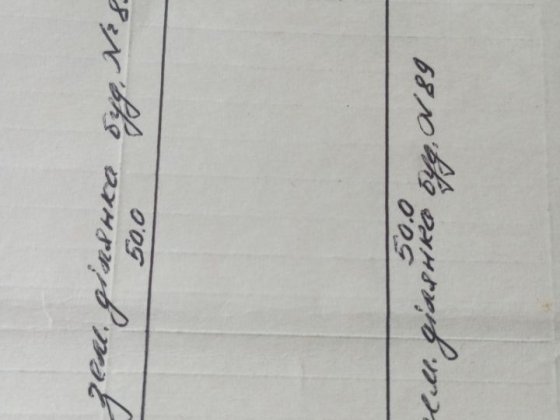 зем. ділянка буд. № 8
50.0
50.0
зем. ділянка буд. № 89